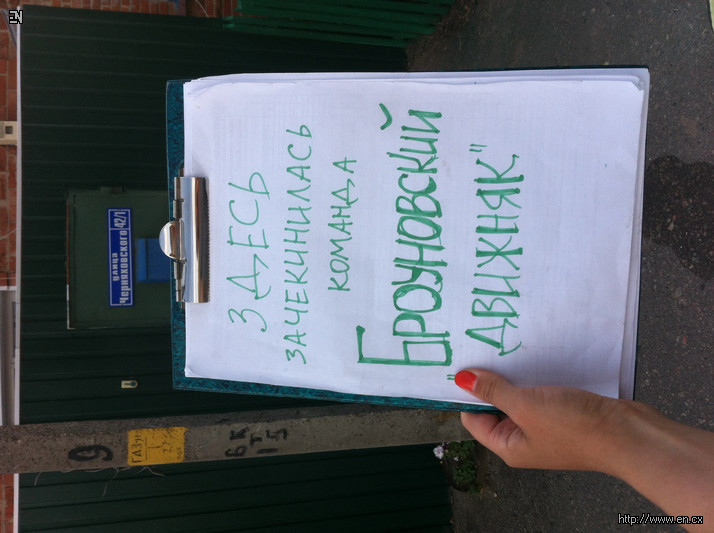 ЗДЕСЬ
ЗАЧЕКИНИЛАСЬ
КОМАНДА
"БРОУНОВСКИЙ
ДВИЖНЯК"
улица
Черняховского 42/1
9
ГАЗ
6 К
1 5
EN
http://www.en.cx